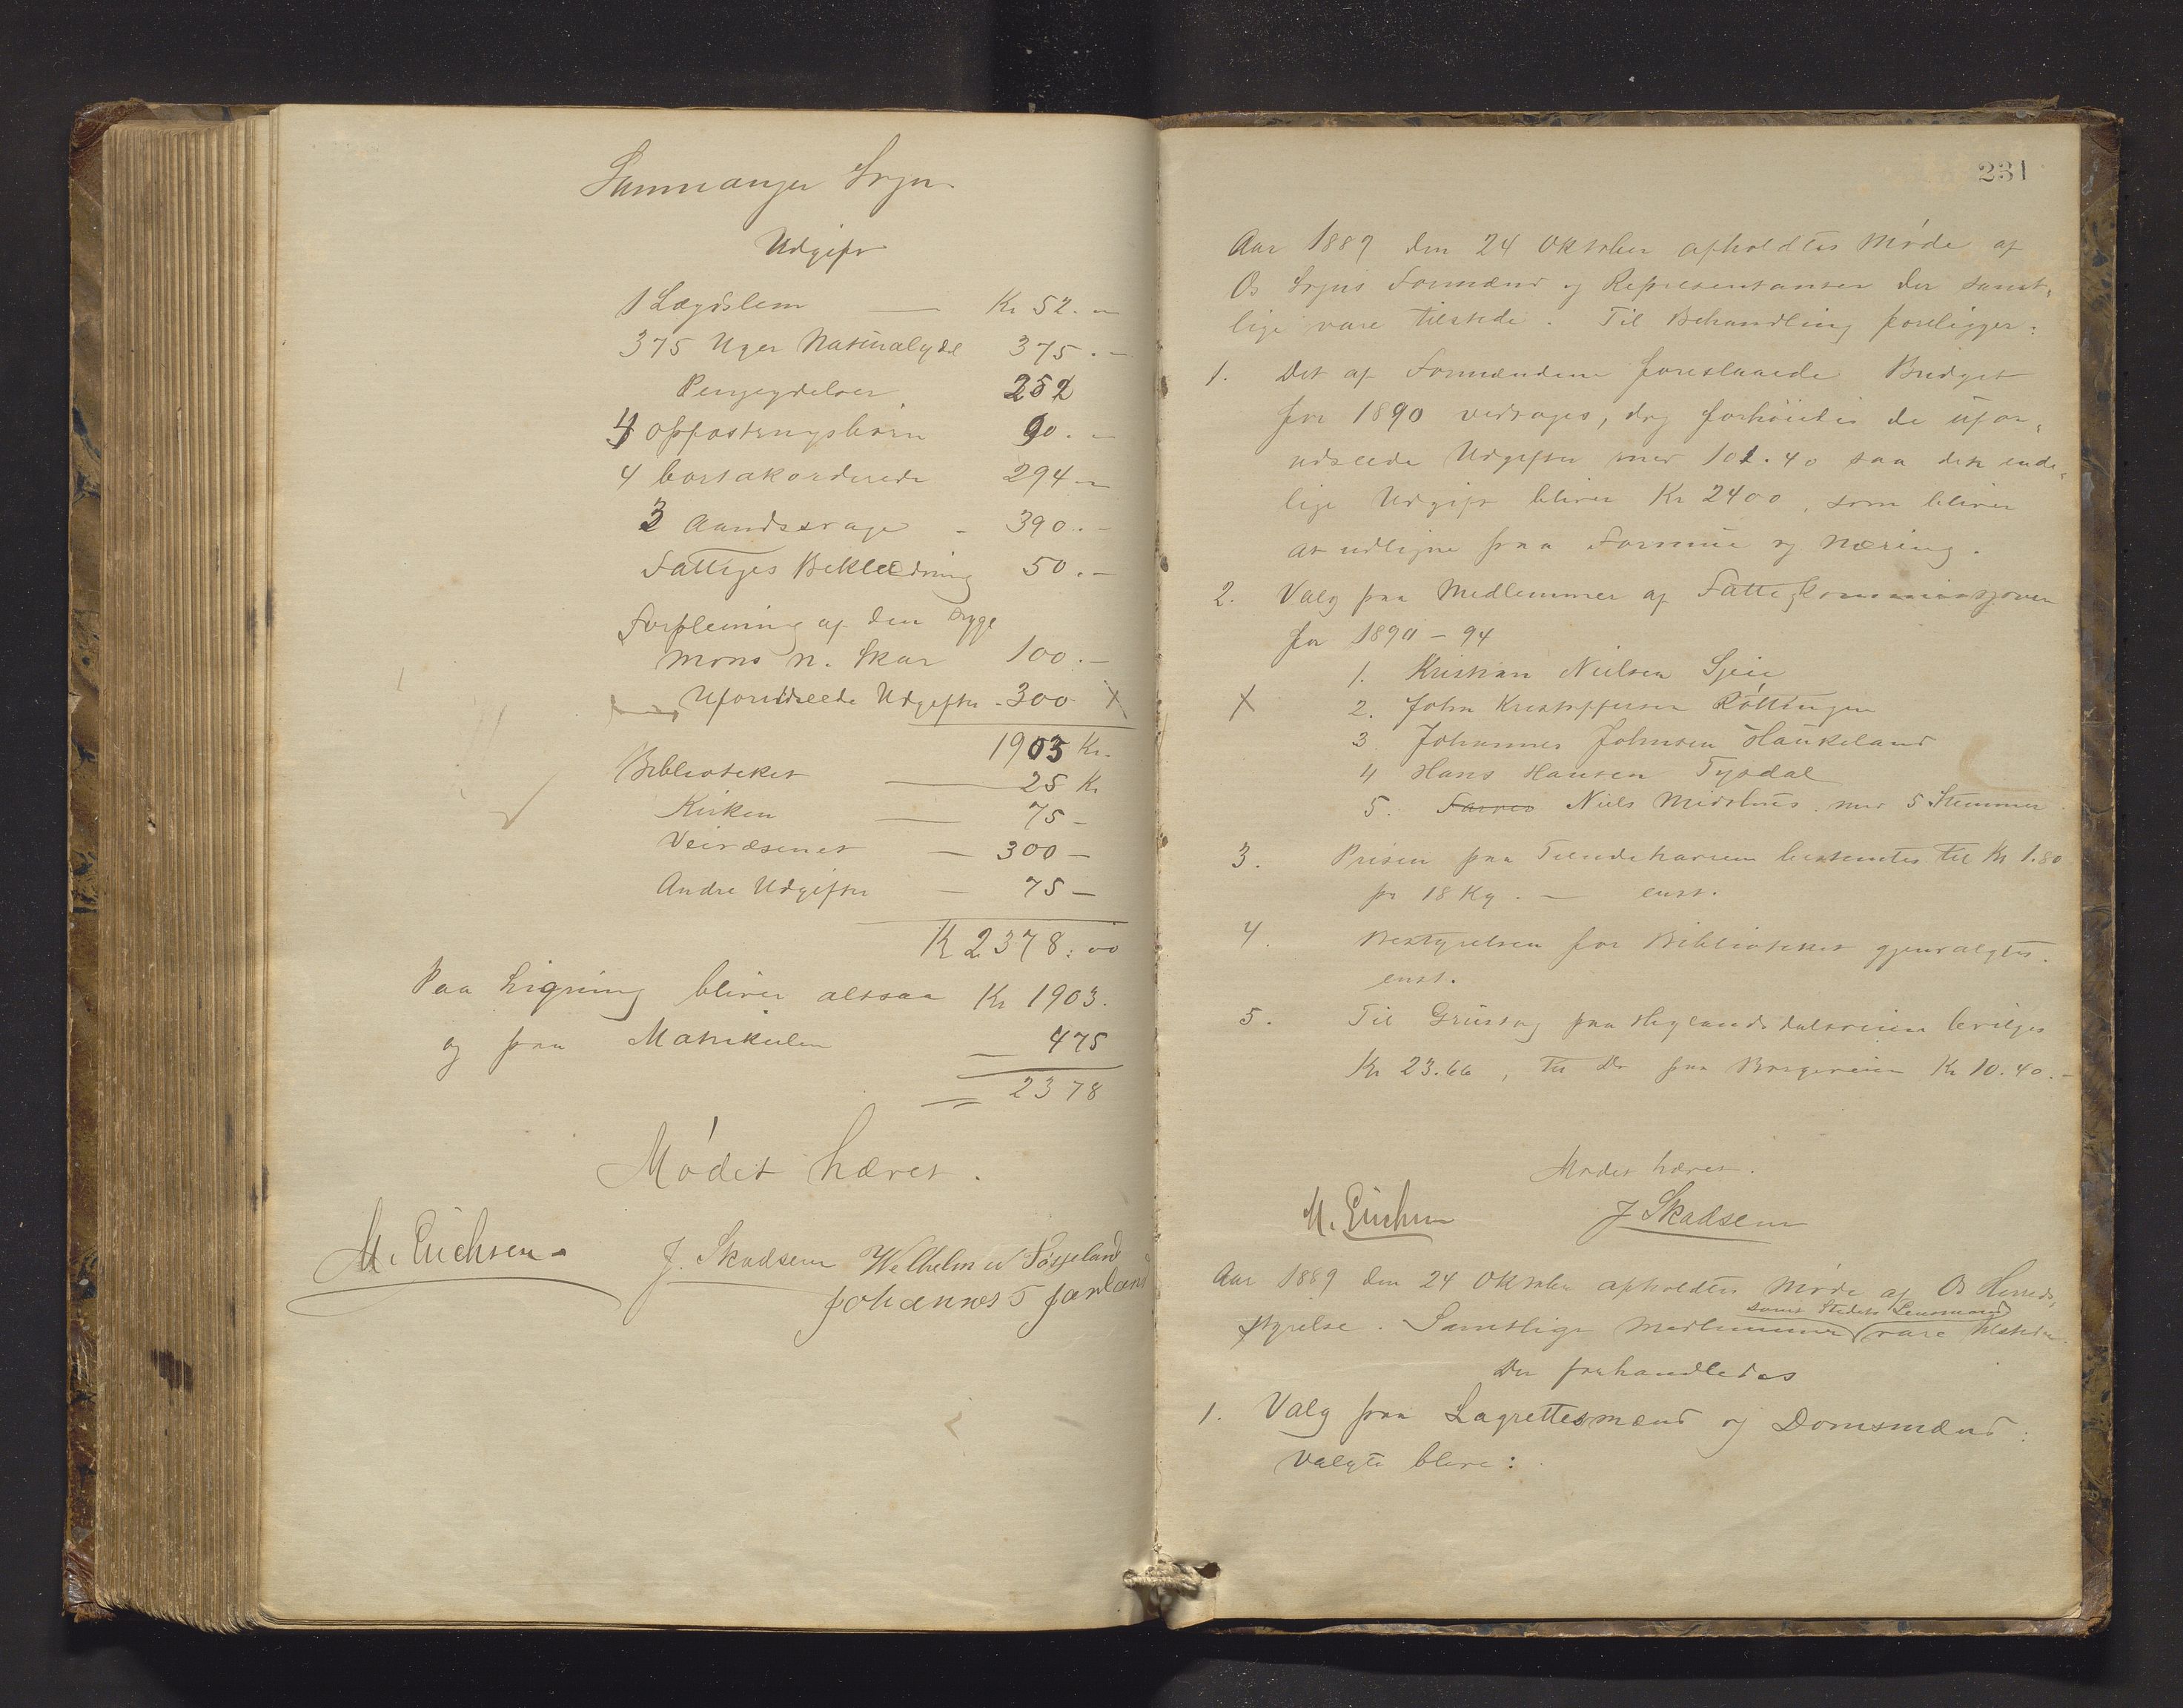 Samnanger Sogn
Udgift
1 Lægdslem — Kr 52.–
375 Uger Naturalydel 375.–
Pengeydelser 252
4 opfostringsbørn 90.–
4 bortakorderede 294 –
3 Aandssvage – 390.–
Fattiges Beklædning 50.–
Forpleining af den syge
Mons N. Skar 100.–
Uforudseede Udgifter – 300 X
1903 Kr.
Biblioteket — 25 Kr
Kirken — 75 –
Veivæsenet — 300 –
Andre Udgifter — 75 –
Kr 2378:00
Paa Ligning bliver altsaa Kr 1903.
og paa Matrikulen — 475
2378
Mødet hævet.
M. Erichsen J. Skadsem Wilhelm
Johannes T
231
Aar 1889 den 24 Oktober afholdtes Møde af
Os Sogns Formænd og Repræsentanter der samt-
lige vare tilstede. Til Behandling foreligger:
1. Det af Formændene foreslaaede Budget
for 1890 vedtages, dog forhøiedes de ufor-
udseede Udgifter med 101.40 saa den ende-
lige Udgift bliver Kr 2400, som bliver
at udligne paa Formue og Næring.
2. Valg paa Medlemmer af Fattigkommissjonen
for 1890 – 94
1. Kristian Nielsen Gjeie
X 2. John Kristoffersen Røttingen
3. Johannes Johnsen Haukeland
4 Hans Hansen Tysdal
5. Niels Midthus med 5 Stemmer
3. Prisen paa Tiendehavren bestemtes til Kr 1.80
pr 18 Kg. — enst.
4. Bestyrelsen for Biblioteket gjenvalgtes.
enst.
5. Til Grustag paa Heglandsdalsveien bevilges
Kr 23.66, til Do paa Borgeveien Kr 10.40.–
Mødet hævet.
M. Erichsen J Skadsem
Aar 1889 den 24 Oktober afholdtes Møde af Os Herreds-
samt Stedets Lensmand
styrelse. Samtlige Medlemmer vare tilstede.
Der forhandledes
1. Valg paa Lagrettesmænd og Domsmænd:
Valgte bleve: